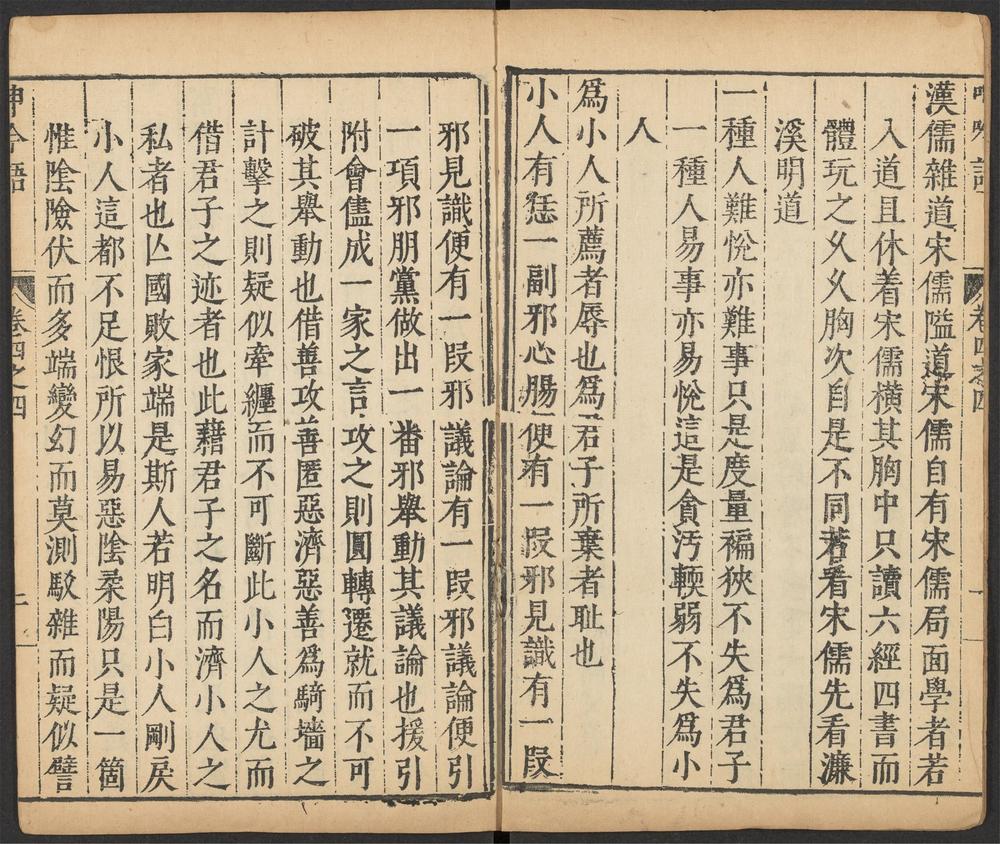 呻吟語
卷四之四
一
漢儒雜道宋儒隘道宋儒自有宋儒局面學者若
入道且休着宋儒橫其胸中只讀六經四書而
體玩之乆乆胸次自是不同若看宋儒先看濂
溪明道
一種人難悅亦難事只是度量褊狹不失爲君子
一種人易事亦易悅這是貪汚輭弱不失爲小
人
爲小人所薦者辱也爲君子所棄者耻也
小人有恁一副邪心腸便有一叚邪見識有一叚
邪見識便有一叚邪議論有一叚邪議論便引
一項邪朋黨做出一番邪舉動其議論也援引
附會儘成一家之言攻之則圓轉遷就而不可
破其舉動也借善攻善匿惡濟惡善爲騎墻之
計擊之則疑似牽纏而不可斷此小人之尤而
借君子之迹者也此藉君子之名而濟小人之
私者也亾國敗家端是斯人若明白小人剛戾
小人這都不足恨所以易惡陰柔陽只是一箇
惟陰險伏而多端變幻而莫測駁雜而疑似譬
呻吟語
卷四之四
二